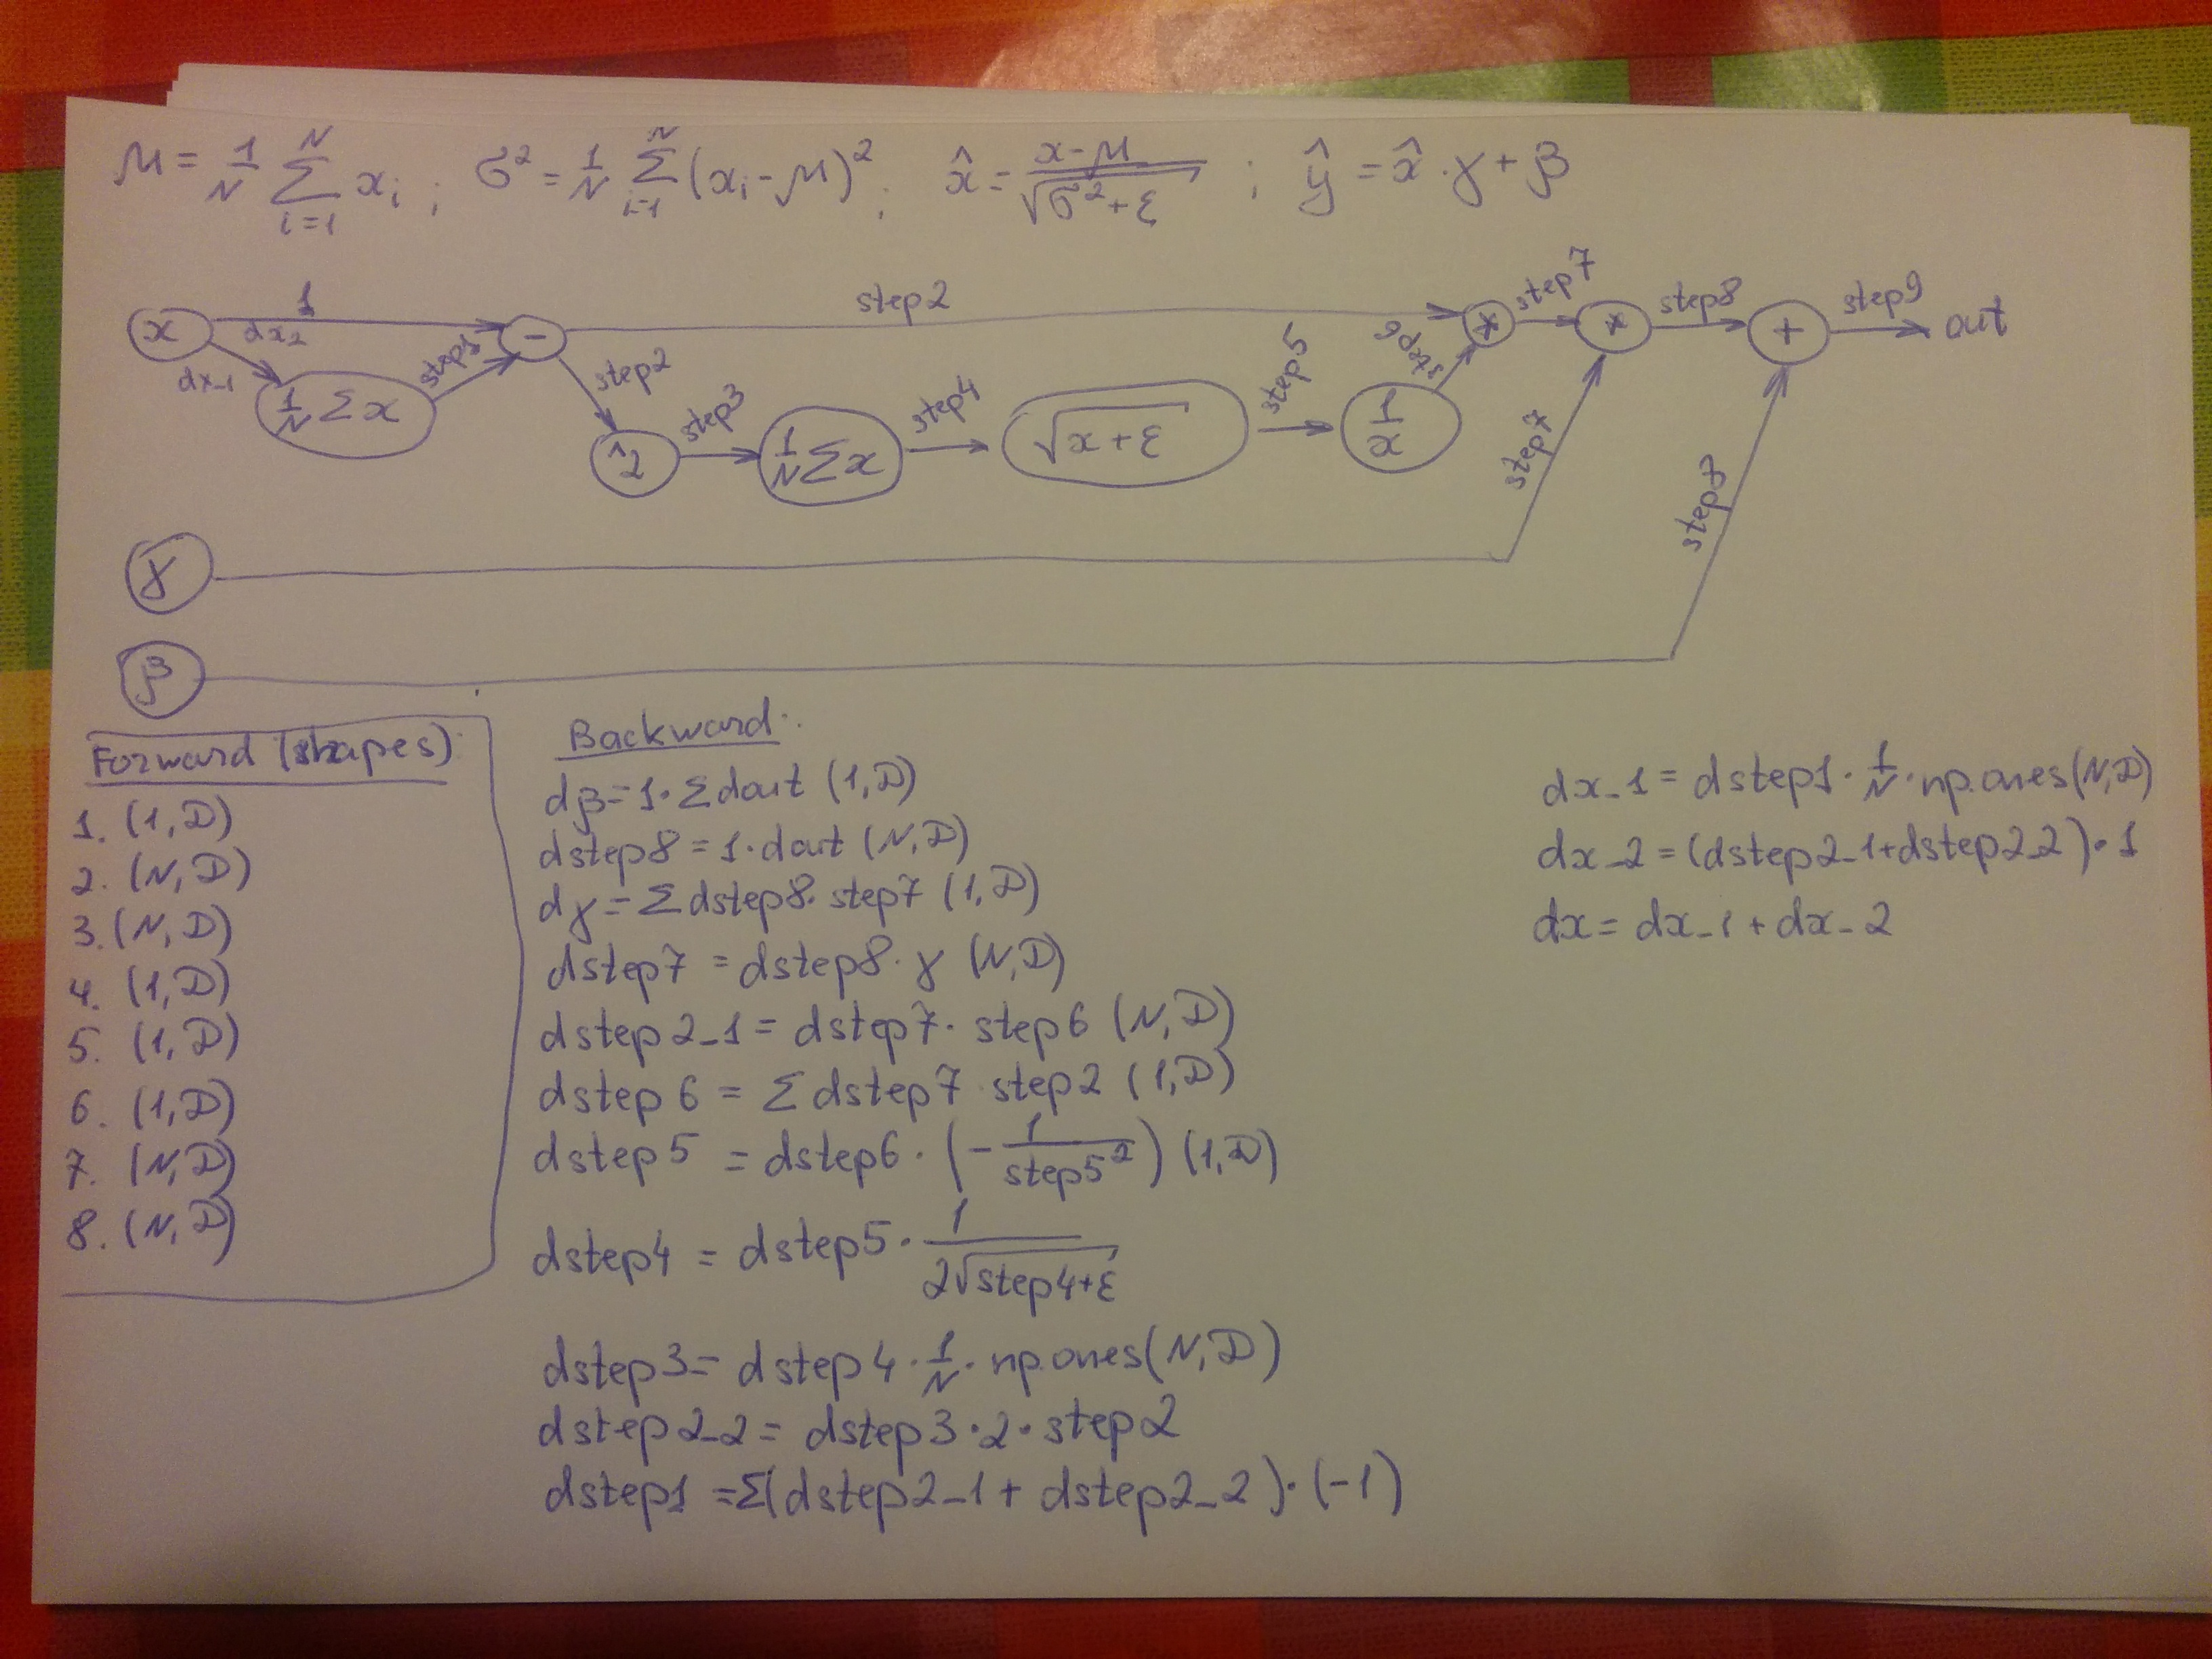 μ = 1/N Σ_{i=1}^{N} x_i ; σ² = 1/N Σ_{i=1}^{N} (x_i - μ)² ; x̂ = (x-μ)/√(σ²+ε) ; ŷ = x̂ · γ + β
x 1 dx_2 dx-1 1/N Σ x step1 - step2 step2 ^2 step3 1/N Σ x step4 √(x+ε) step5 1/x step6 * step7 * step8 + step9 out
γ step7
β step7
Forward (shapes)
1. (1,D)
2. (N,D)
3. (N,D)
4. (1,D)
5. (1,D)
6. (1,D)
7. (N,D)
8. (N,D)
Backward:
dβ = 1 · Σ dout (1,D)
dstep8 = 1 · dout (N,D)
dγ = Σ dstep8 · step7 (1,D)
dstep7 = dstep8 · γ (N,D)
dstep2_1 = dstep7 · step6 (N,D)
dstep6 = Σ dstep7 · step2 (1,D)
dstep5 = dstep6 · (- 1/step5²) (1,D)
dstep4 = dstep5 · 1/(2√(step4+ε))
dstep3 = dstep4 · 1/N · np.ones(N,D)
dstep2_2 = dstep3 · 2 · step2
dstep1 = Σ(dstep2_1 + dstep2_2) · (-1)
dx_1 = dstep1 · 1/N · np.ones(N,D)
dx_2 = (dstep2_1+dstep2_2) · 1
dx = dx_1 + dx_2